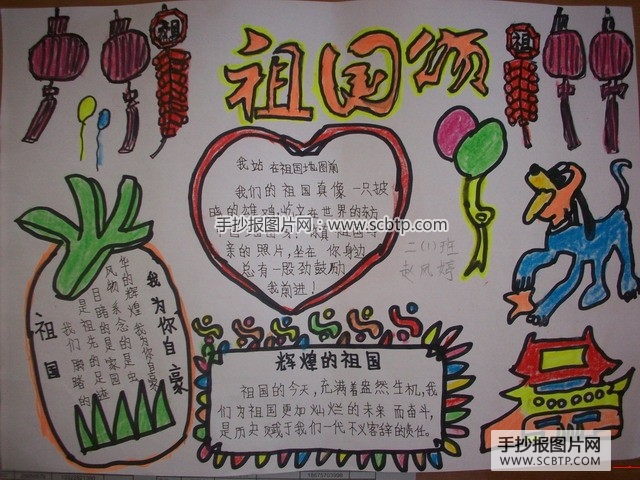 祖国颂
祖
祖
我站在祖国地图前
我们的祖国真像一只披
手抄报图片网:www.scbtp.com
亲的照片,坐在你身边
总有一股劲鼓励
我前进!
二(1)班
我为你自豪
华的辉煌我为你自豪
风物系念的是虫
日睹的是家国
是祖先的足迹
我们踏的
祖国
辉煌的祖国
祖国的今天,充满着盎然生机,我
们为祖国更加灿烂的未来而奋斗,
是历史赋于我们一代不义容辞的责任。
手抄报图片网
WWW.SCBTP.COM